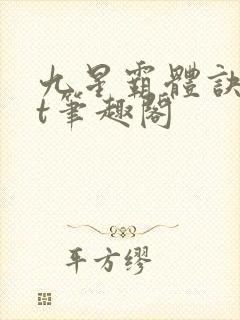 九星霸體訣
t筆趣閣
平方缪